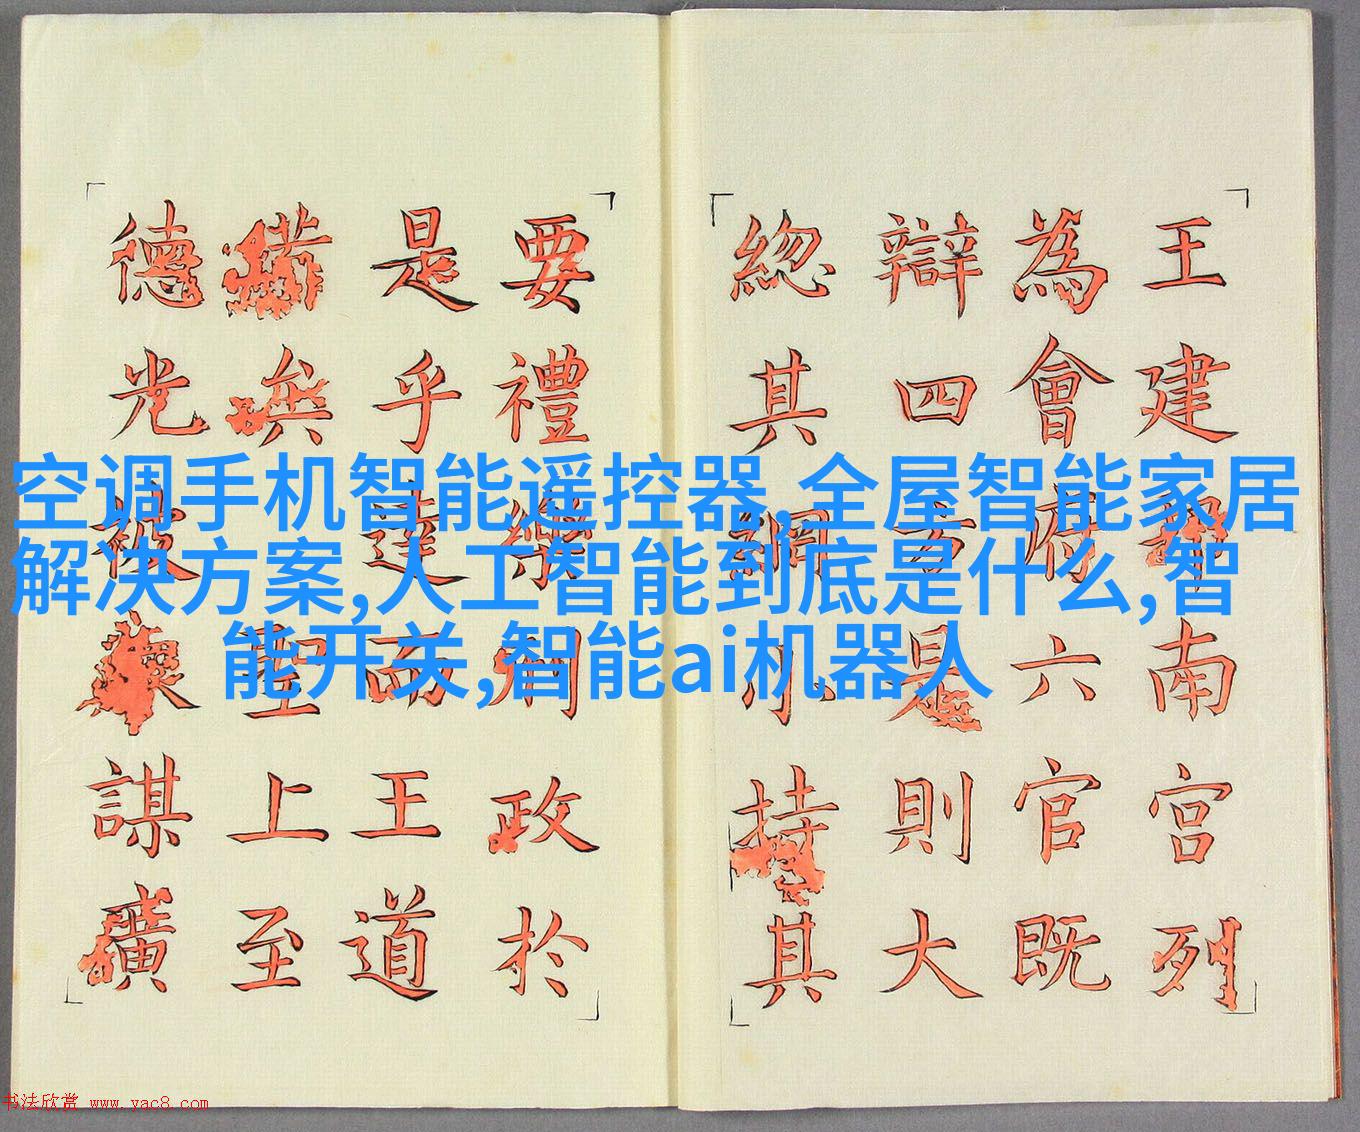 空调手机智能遥控器,全屋智能家居
解决方案,人工智能到底是什么,智
能开关,智能ai机器人
王建邦南宮列
為會府六官既
辯四方是則大
總其綱小持其
要禮樂刑政於
是乎達而王道
備矣聖上至
德光被謀廣
书法欣赏 www.yac8.com